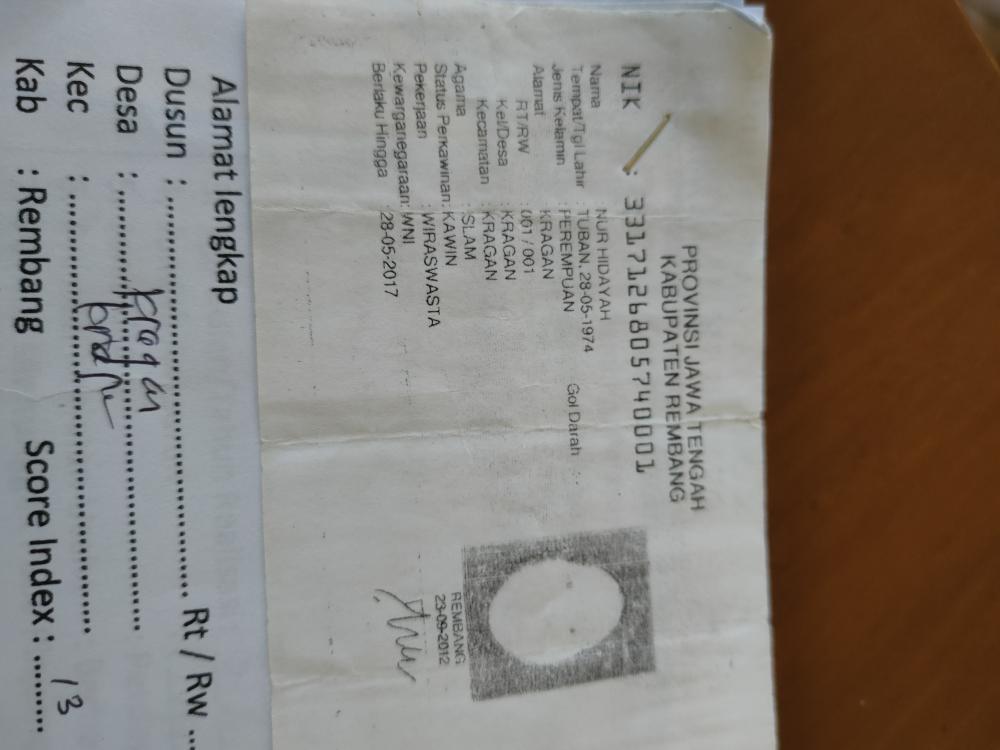 PROVINSI JAWA TENGAH
KABUPATEN REMBANG
NIK : 3317126805740001
Nama : NUR HIDAYAH
Tempat/Tgl Lahir : TUBAN, 28-05-1974
Jenis Kelamin : PEREMPUAN Gol Darah :-
Alamat : KRAGAN
RT/RW : 001 / 001
Kel/Desa : KRAGAN
Kecamatan : KRAGAN
Agama : ISLAM
Status Perkawinan: KAWIN
Pekerjaan : WIRASWASTA
Kewarganegaraan: WNI
Berlaku Hingga : 28-05-2017
REMBANG
23-09-2012
Alamat lengkap
Dusun : ........................................ Rt / Rw ...
Desa : ........................................
Kec : ........................................
Kab : Rembang Score Index : 13